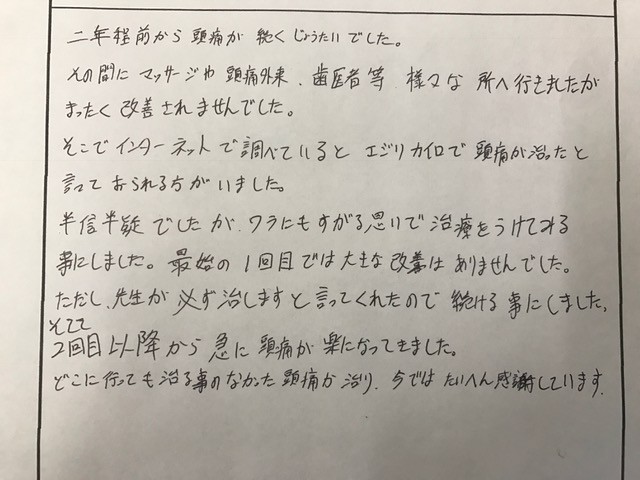 二年程前から頭痛が続くじょうたいでした。
その間にマッサージや頭痛外来、歯医者等様々な所へ行きましたが
まったく改善されませんでした。
そこでインターネットで調べているとエジリカイロで頭痛が治ったと
言っておられる方がいました。
半信半疑でしたが、ワラにもすがる思いで治療をうけてみる
事にしました。最始の1回目では大きな改善はありませんでした。
ただし、先生が必ず治しますと言ってくれたので続ける事にしました。
そして
2回目以降から急に頭痛が楽になってきました。
どこに行っても治る事のなかった頭痛が治り、今ではたいへん感謝しています。